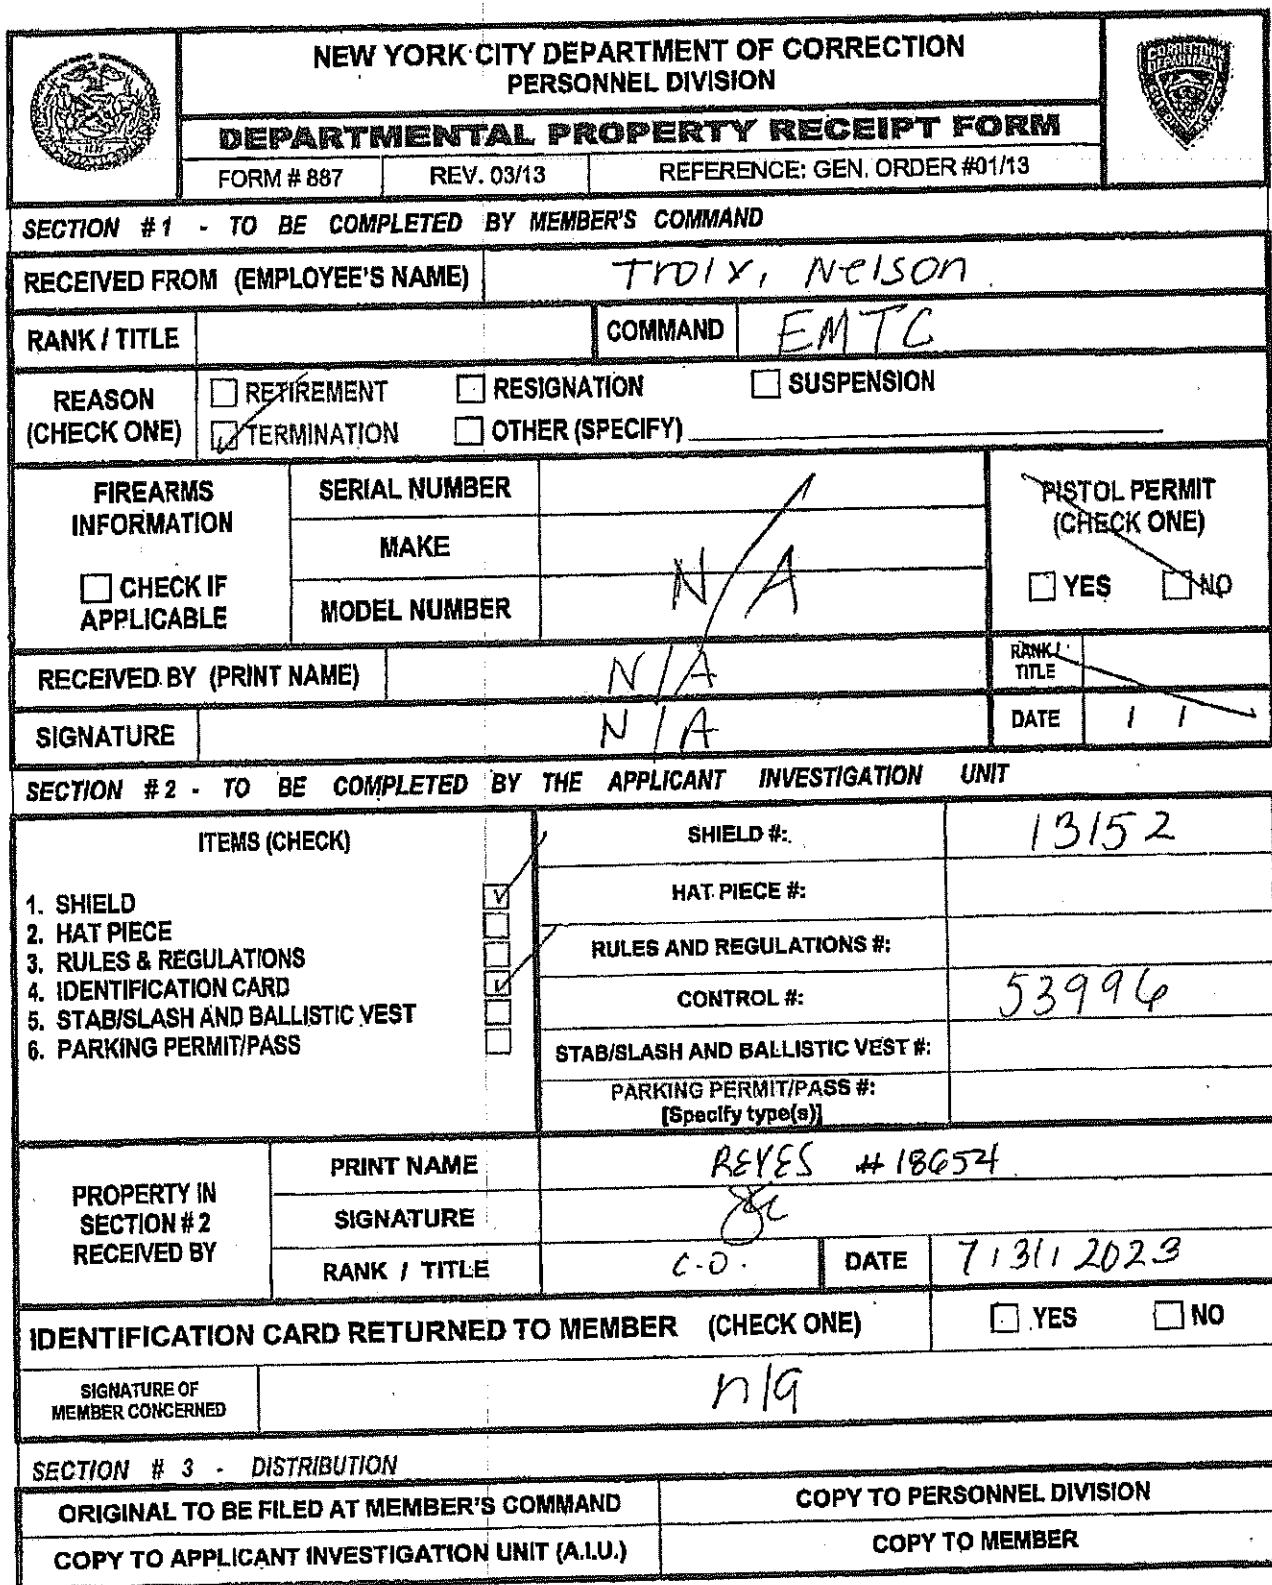 NEW YORK CITY DEPARTMENT OF CORRECTION
PERSONNEL DIVISION
DEPARTMENTAL PROPERTY RECEIPT FORM
FORM # 887 REV. 03/13 REFERENCE: GEN. ORDER #01/13
SECTION #1 - TO BE COMPLETED BY MEMBER'S COMMAND
RECEIVED FROM (EMPLOYEE'S NAME) Troix, Nelson
RANK / TITLE COMMAND EMTC
REASON (CHECK ONE)
RETIREMENT RESIGNATION SUSPENSION
TERMINATION OTHER (SPECIFY)
FIREARMS INFORMATION
CHECK IF APPLICABLE
SERIAL NUMBER
MAKE
MODEL NUMBER
N/A
PISTOL PERMIT
(CHECK ONE)
YES NO
RECEIVED BY (PRINT NAME) N/A RANK / TITLE
SIGNATURE N/A DATE / /
SECTION #2 - TO BE COMPLETED BY THE APPLICANT INVESTIGATION UNIT
ITEMS (CHECK)
1. SHIELD
2. HAT PIECE
3. RULES & REGULATIONS
4. IDENTIFICATION CARD
5. STAB/SLASH AND BALLISTIC VEST
6. PARKING PERMIT/PASS
SHIELD #: 13152
HAT PIECE #:
RULES AND REGULATIONS #:
CONTROL #: 53996
STAB/SLASH AND BALLISTIC VEST #:
PARKING PERMIT/PASS #:
[Specify type(s)]
PROPERTY IN
SECTION #2
RECEIVED BY
PRINT NAME REYES #18654
SIGNATURE
RANK / TITLE C.O. DATE 7/31/2023
IDENTIFICATION CARD RETURNED TO MEMBER (CHECK ONE) YES NO
SIGNATURE OF
MEMBER CONCERNED
n/a
SECTION # 3 - DISTRIBUTION
ORIGINAL TO BE FILED AT MEMBER'S COMMAND COPY TO PERSONNEL DIVISION
COPY TO APPLICANT INVESTIGATION UNIT (A.I.U.) COPY TO MEMBER